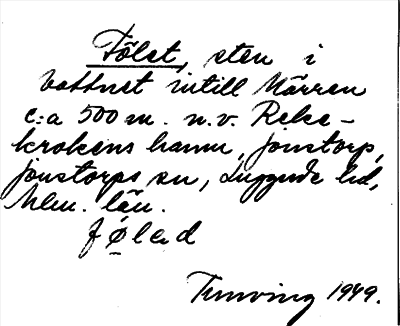 Fölet, sten i
vattnet intill Märren
c:a 500 m. n.v. Reke-
krokens hamn, Jonstorp,
Jonstorps sn, Luggude hd,
Mlm. län.
fø̣led
Tunving 1949.